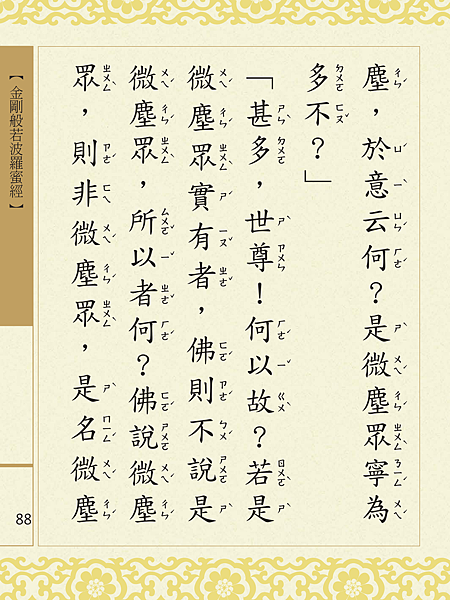 塵，於意云何？是微塵眾寧為
多不？」
「甚多，世尊！何以故？若是
微塵眾實有者，佛則不說是
微塵眾，所以者何？佛說微塵
眾，則非微塵眾，是名微塵
【金剛般若波羅蜜經】
88